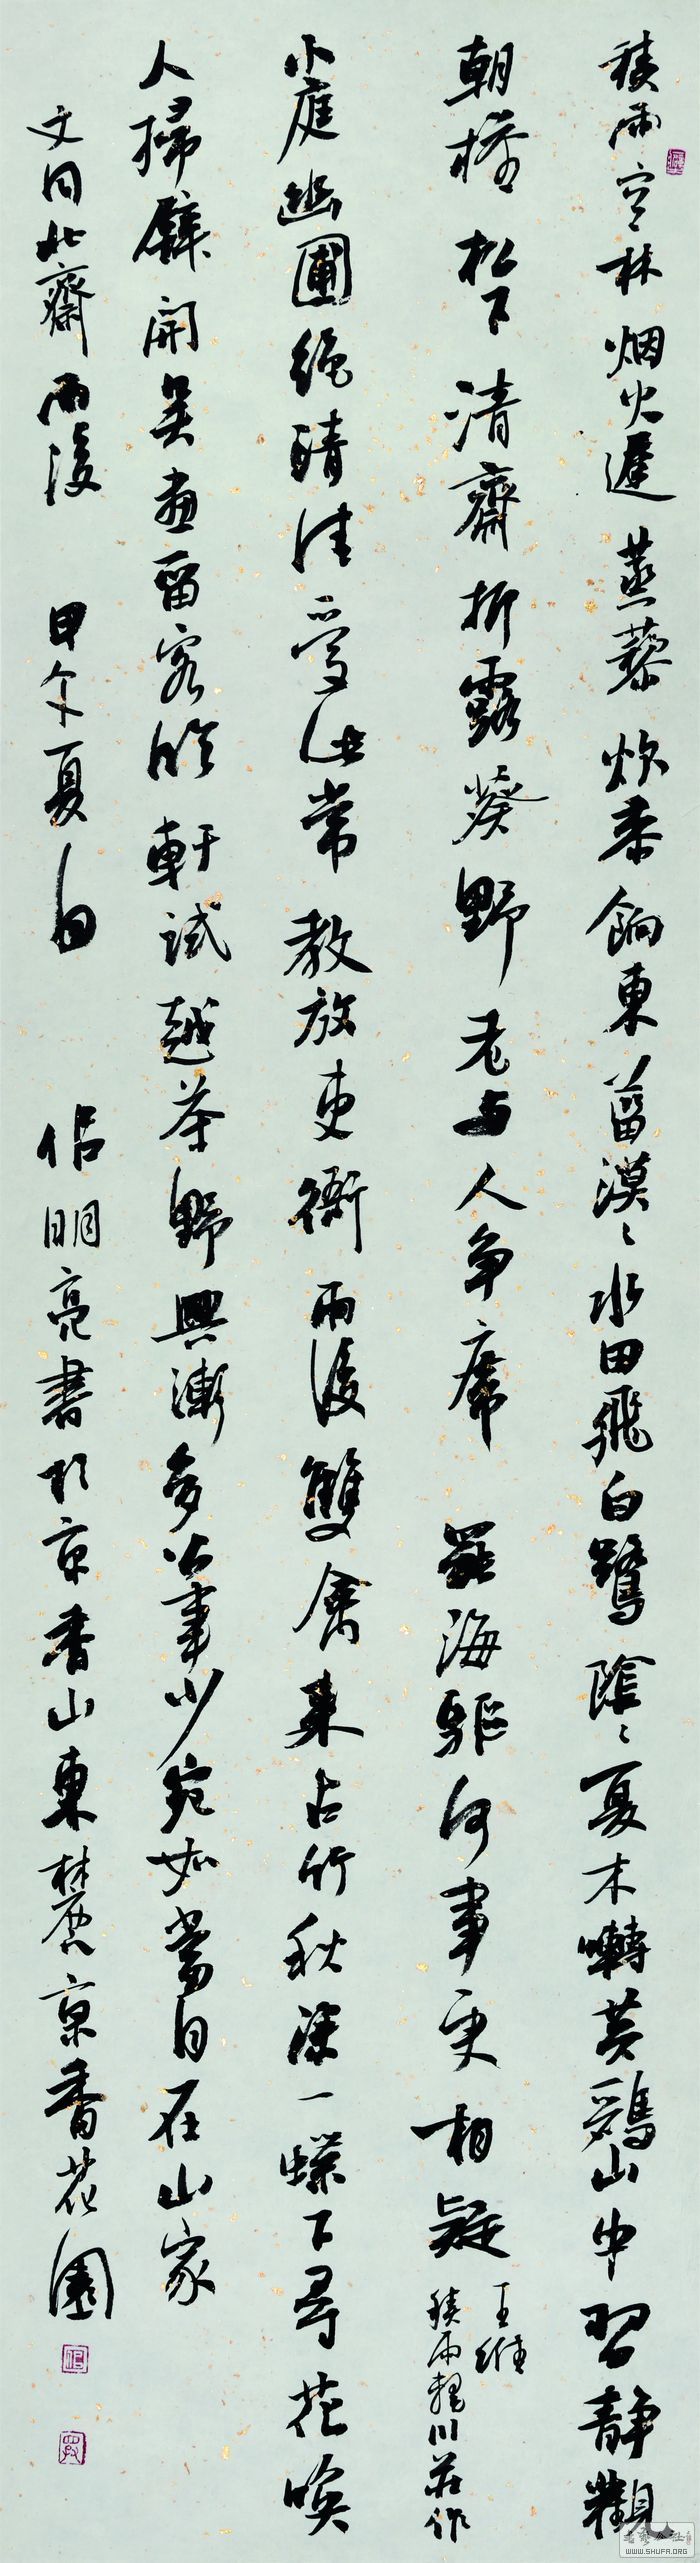 積雨空林烟火遲蒸藜炊黍餉東菑漠〻水田飛白鷺陰〻夏木囀黃鸝山中習靜觀
朝槿松下清齋折露葵野老与人争席罷海鷗何事更相疑
王維
積雨輞川莊作
小庭幽圃絕清佳愛此常教放吏衙雨後雙禽來占竹秋深一蝶下尋花喚
人掃壁開吳畫留客臨軒試越茶野興漸多公事少宛如當日在山家
文同北齋雨後 甲午夏日 佀明亮書於京香山東麓京香花園
WWW.SHUFA.ORG